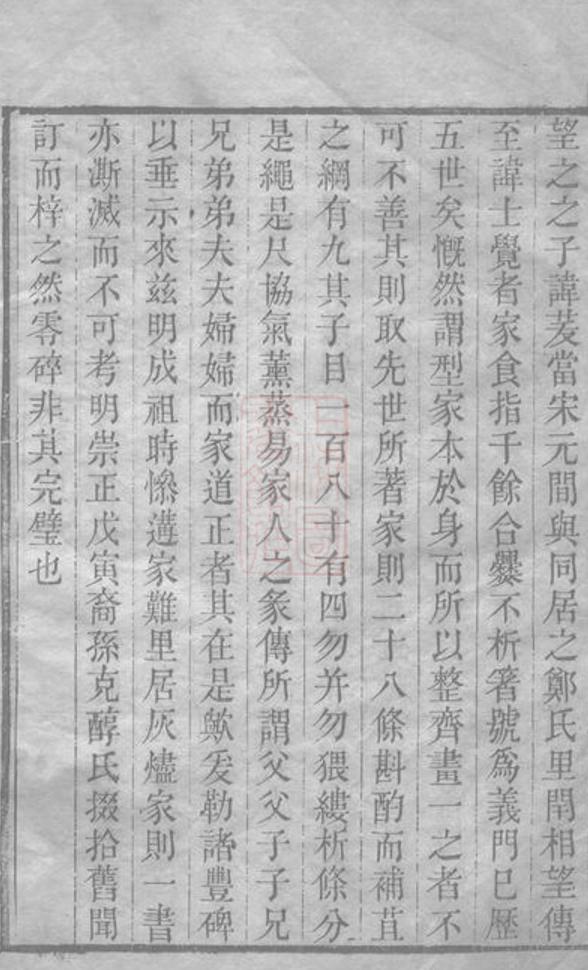 望之之子諱荾當宋元間與同居之鄭氏里閈相望傳
至諱士覺者家食指千餘合爨不析箸號爲義門已歷
五世矣慨然謂型家本於身而所以整齊畫一之者不
可不善其則取先世所著家則二十八條斟酌而補苴
之綱有九其子目一百八十有四勿幷勿猥縷析條分
是繩是尺協氣薰蒸易家人之彖傳所謂父父子子兄
兄弟弟夫夫婦婦而家道正者其在是歟爰勒諸豐碑
以垂示來兹明成祖時慘遘家難里居灰燼家則一書
亦澌滅而不可考明崇正戊寅裔孫克醇氏掇拾舊聞
訂而梓之然零碎非其完璧也